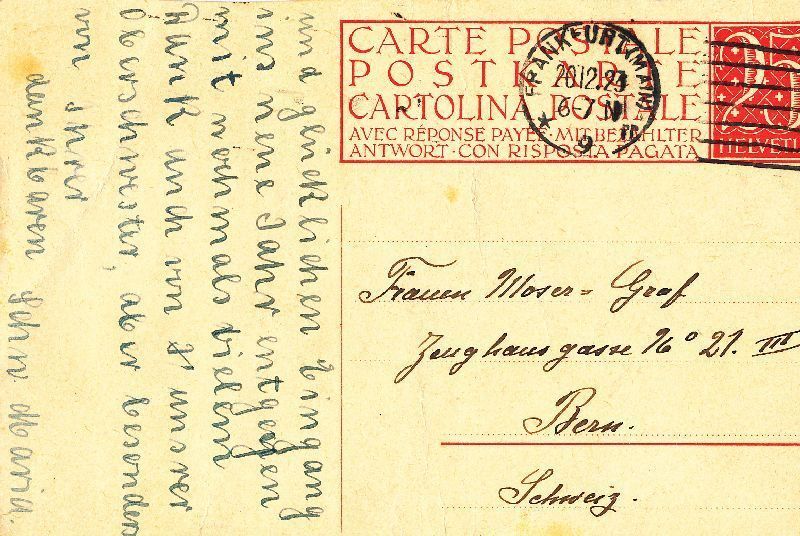 CARTE POSTALE
POSTKARTE
CARTOLINA POSTALE
AVEC RÉPONSE PAYÉE · MIT BEZAHLTER
ANTWORT · CON RISPOSTA PAGATA
FRANKFURT (MAIN)
20.12.24
6-7 N
9
25
HELVETIA
Frauen Moser-Graf
Zeughausgasse No 21. III
Bern.
Schweiz.
und glücklichen Eingang
ins neue Jahr entgegen
mit nochmals vielem
Dank auch von
Oberschwester, aber besonders
von Ihrer
dankbaren Schw Maria.